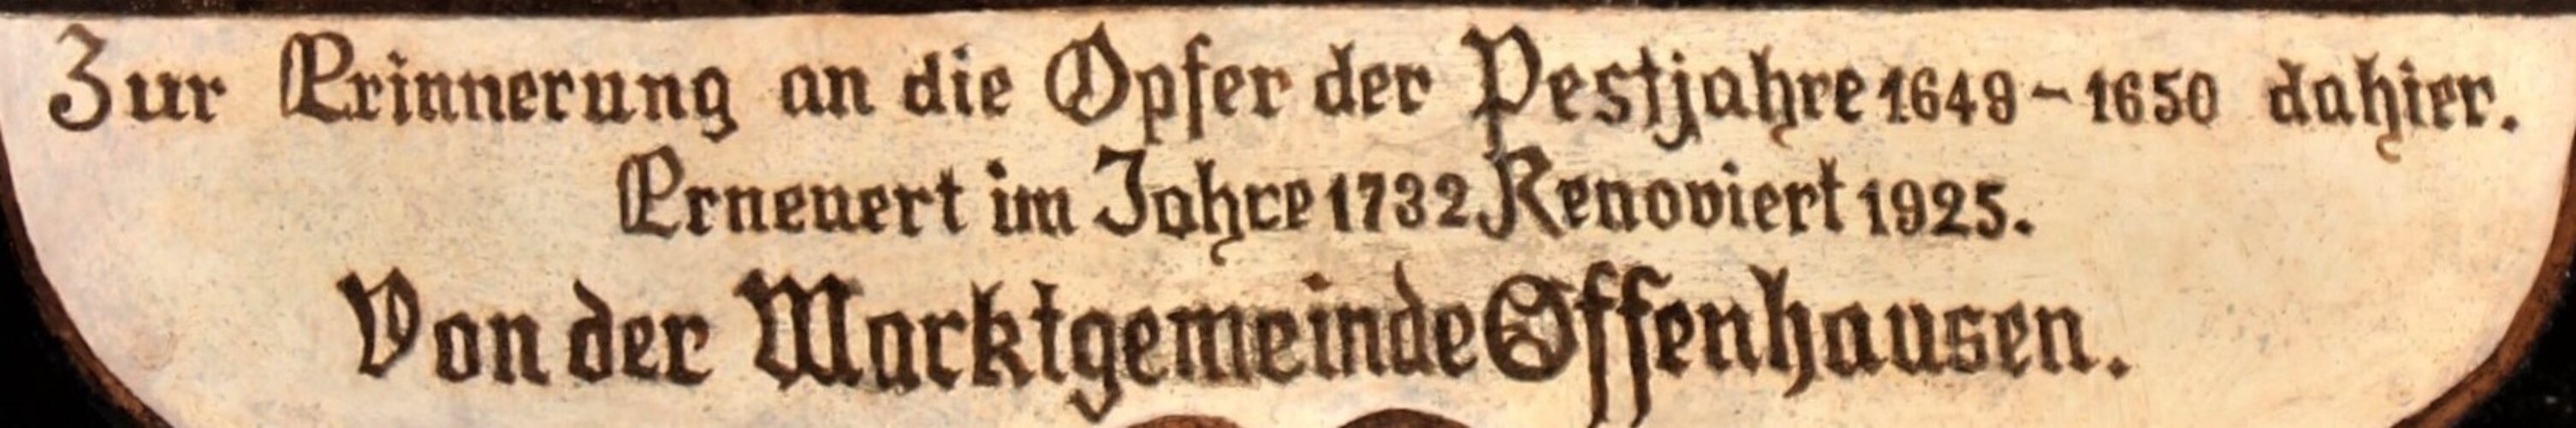 Zur Erinnerung an die Opfer der Pestjahre 1649 - 1650 dahier.
Erneuert im Jahre 1732 Renoviert 1925.
Von der Marktgemeinde Offenhausen.